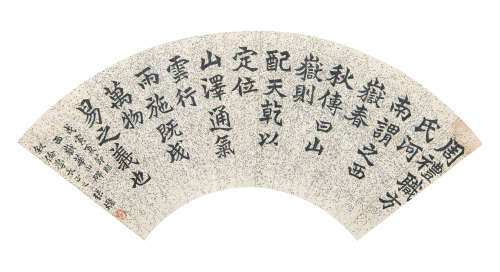 周禮職方
氏河
南謂之西
嶽春
秋傳曰山
嶽則
配天乾以
定位
山澤通氣
雲行
雨施既成
萬物
易之義也